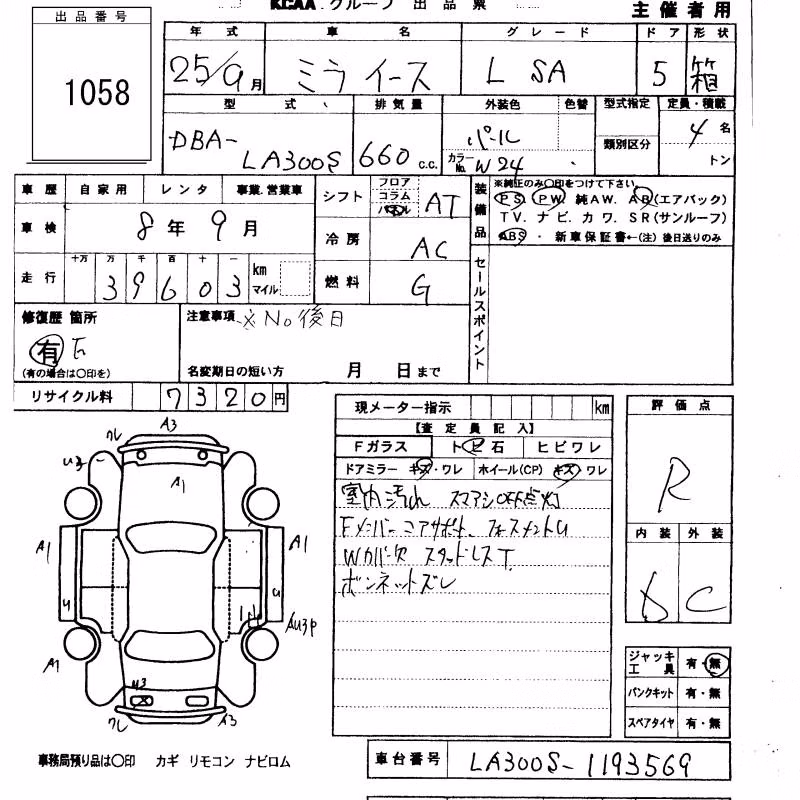 KCAA.グループ 出品票
主催者用
出品番号
1058
年式 車名 グレード ドア 形状
25/9月 ミライース L SA 5 箱
型式 排気量 外装色 色替 型式指定 定員・積載
DBA-LA300S 660c.c. パール 類別区分 4名
カラーNo. W24 トン
車歴 自家用 レンタ 事業.営業車
シフト フロア コラム パネル AT
装備品 ※純正のみ〇印をつけて下さい。
PS. PW. 純AW. AB(エアバック)
TV. ナビ. カワ. SR(サンルーフ)
ABS ・ 新車保証書←(注) 後日送りのみ
車検 8年9月
冷房 AC
走行 十万 万 千 百 十 一
39603 km マイル
燃料 G
セールスポイント
修復歴 箇所
有 F
(有の場合は〇印を)
注意事項 ※No後日
名変期日の短い方 月 日まで
リサイクル料 7320円
現メーター指示 km
【査定員記入】
Fガラス トビ石 ヒビワレ
ドアミラー キズ・ワレ ホイール(CP) キズ・ワレ
室内汚れ スマアシOFF点灯
Fメンバー コアサポート
Wカバー欠 スタッドレスT
ボンネットズレ
評価点
R
内装 外装
D C
A3
クレ
U3
A1
A1
A1
U
U
AU3P
A1
U3
クレ
A3
ジャッキ工具 有・無
パンクキット 有・無
スペアタイヤ 有・無
事務局預り品は〇印 カギ リモコン ナビロム
車台番号 LA300S-1193569